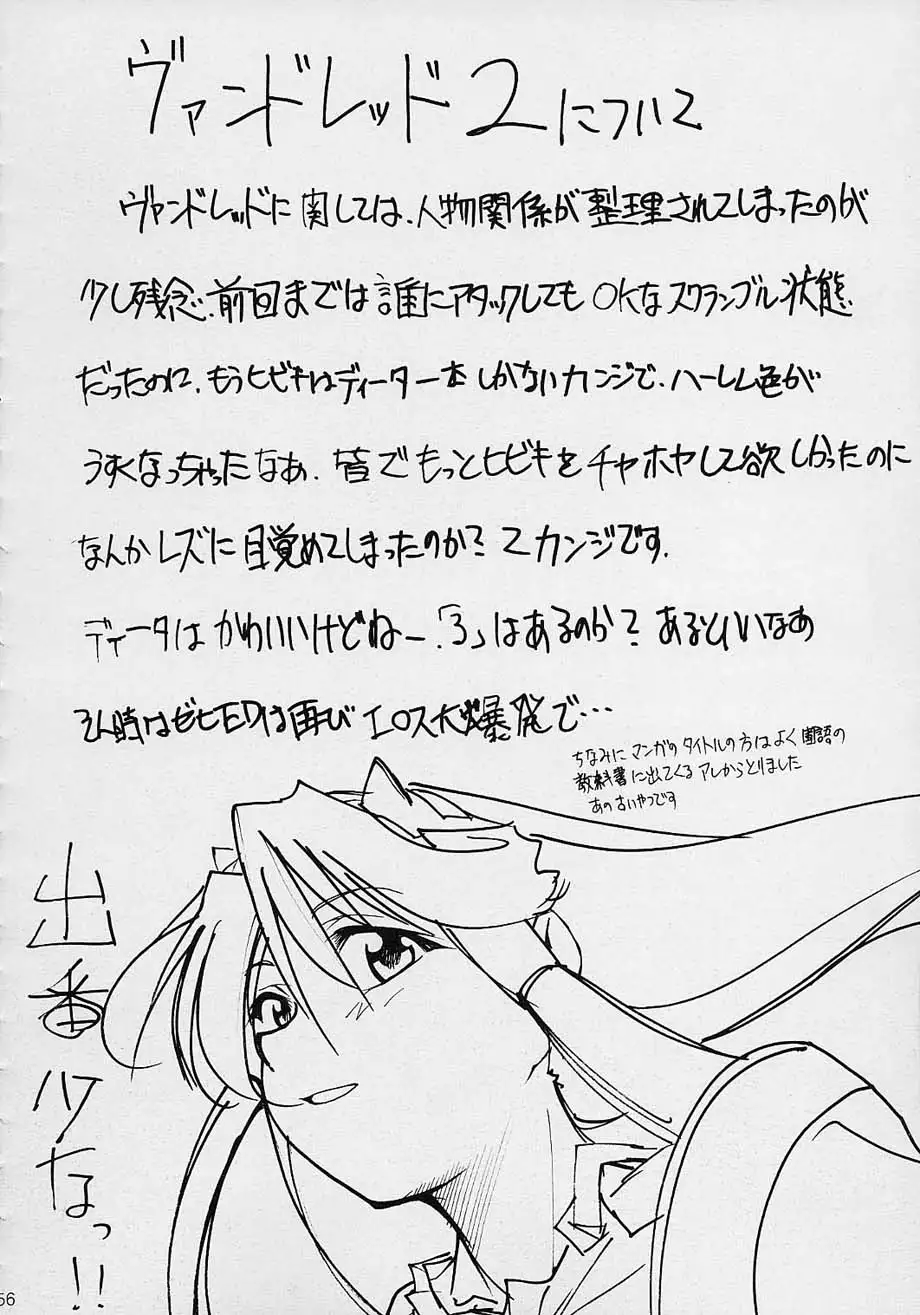 ヴァンドレッド2について
ヴァンドレッドに関しては、人物関係が整理されてしまったのが
少し残念、前回までは誰にアタックしてもOKなスクランブル状態
だったのに、もうヒビキはディーター本しかないカンジで、ハーレム色が
うすくなっちゃったなあ、皆でもっとヒビキをチヤホヤして欲しかったのに
なんかレズに目覚めてしまったのか?てカンジです。
ディータはかわいいけどねー、「3」はあるのか?あるといいなあ
その時はぜひEDは再びエロス大爆発で…
ちなみにマンガのタイトルの方はよく国語の
教科書に出てくるアレからとりました
あの古いやつです
出番少なっ!!
56